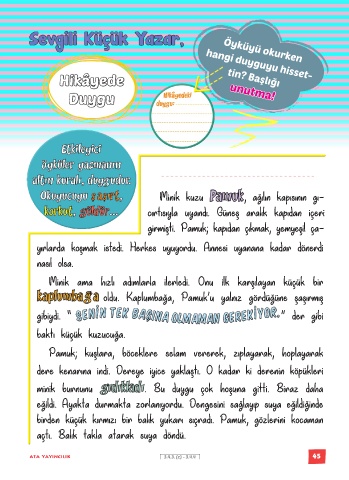 Sevgili Küçük Yazar,
Öyküyü okurken
hangi duyguyu hisset-
tin? Başlığı
unutma!
Hikâyede
Duygu
Hikâyedeki
duygu:
Etkileyici
öyküler yazmanın
altın kuralı, duygudur.
Okuyucuyu şaşırt,
korkut, güldür...
Minik kuzu Pamuk, ağılın kapısının gı-
cırtısıyla uyandı. Güneş aralık kapıdan içeri
girmişti. Pamuk; kapıdan çıkmak, yemyeşil ça-
yırlarda koşmak istedi. Herkes uyuyordu. Annesi uyanana kadar dönerdi
nasıl olsa.
Minik ama hızlı adımlarla ilerledi. Onu ilk karşılayan küçük bir
kaplumbağa oldu. Kaplumbağa, Pamuk'u yalnız gördüğüne şaşırmış
gibiydi. " SENİN TEK BAŞINA OLMAMAN GEREKİYOR." der gibi
baktı küçük kuzucuğa.
Pamuk; kuşlara, böceklere selam vererek, zıplayarak, hoplayarak
dere kenarına indi. Dereye iyice yaklaştı. O kadar ki derenin köpükleri
minik burnunu gıdıkladı. Bu duygu çok hoşuna gitti. Biraz daha
eğildi. Ayakta durmakta zorlanıyordu. Dengesini sağlayıp suya eğildiğinde
birden küçük kırmızı bir balık yukarı sıçradı. Pamuk, gözlerini kocaman
açtı. Balık takla atarak suya döndü.
ATA YAYINCILIK
45